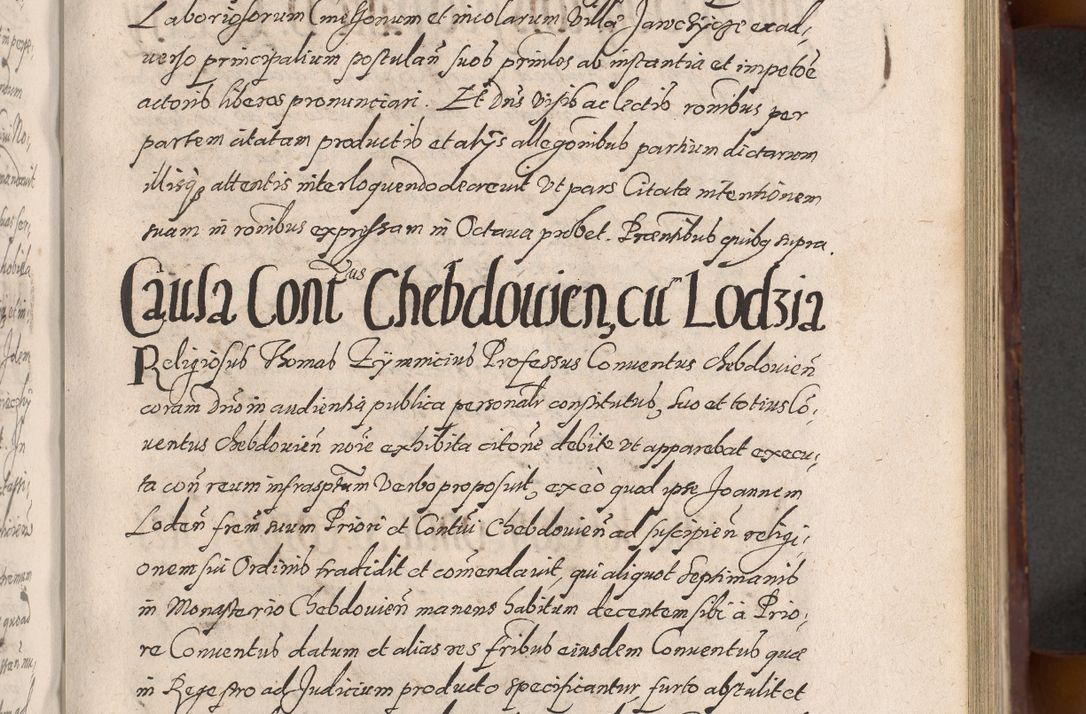 Laboriosorum Cmetsonum et incolarum Villæ Jawczyce exad,
verso principalium postulan̄ suos prin̄les ab instantia et impetōe
actoris liberos pronunciari. Et Dn̄s Visis ac lectis rōnibus per
partem citatam productis et alijs allegōnibus partium dictarum
illisq̨ attentis interloquendo decrevit Vt pars Citata intentionem
suam in rōnibus expressam in Octava probet. Præsentibus quibq supra.
Causa Contus Chebdovien, cū Lodzia
Religiosus Thomas Zymnicius Professus Conventus Chebdovien̄
coram Dn̄o in audientia publica personalr constitutus, suo et totius Cō,
ventus Chebdovien̄ nōīe exhibita citōne debite vt apparebat execu,
ta con̄ reum infrasptum Verbo proposuit, ex eò quod ipse Joannem
Loden̄ frem̄ suum Priori et Contui Chebdovien̄ ad suscipien̄ religi,
onem sui Ordinis tradidit et com̄endavit, qui aliquot septimanis
in Monasterio Chebdovien̄ manens habitum decentem sibi à Prio,
re Conventus datum et alias res fr̄ibus eiusdem Conventus quæ
in Regestro ad Judicium producto specificantur, furto abstulit et